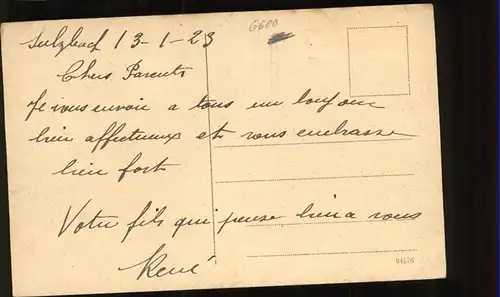 Sulzbach 13-1-23
6600
Chers Parents
Je vous envoir a tous un bonjour
bien affectueux et vous embrasse
bien fort
Votre fils qui pense bien a vous
René